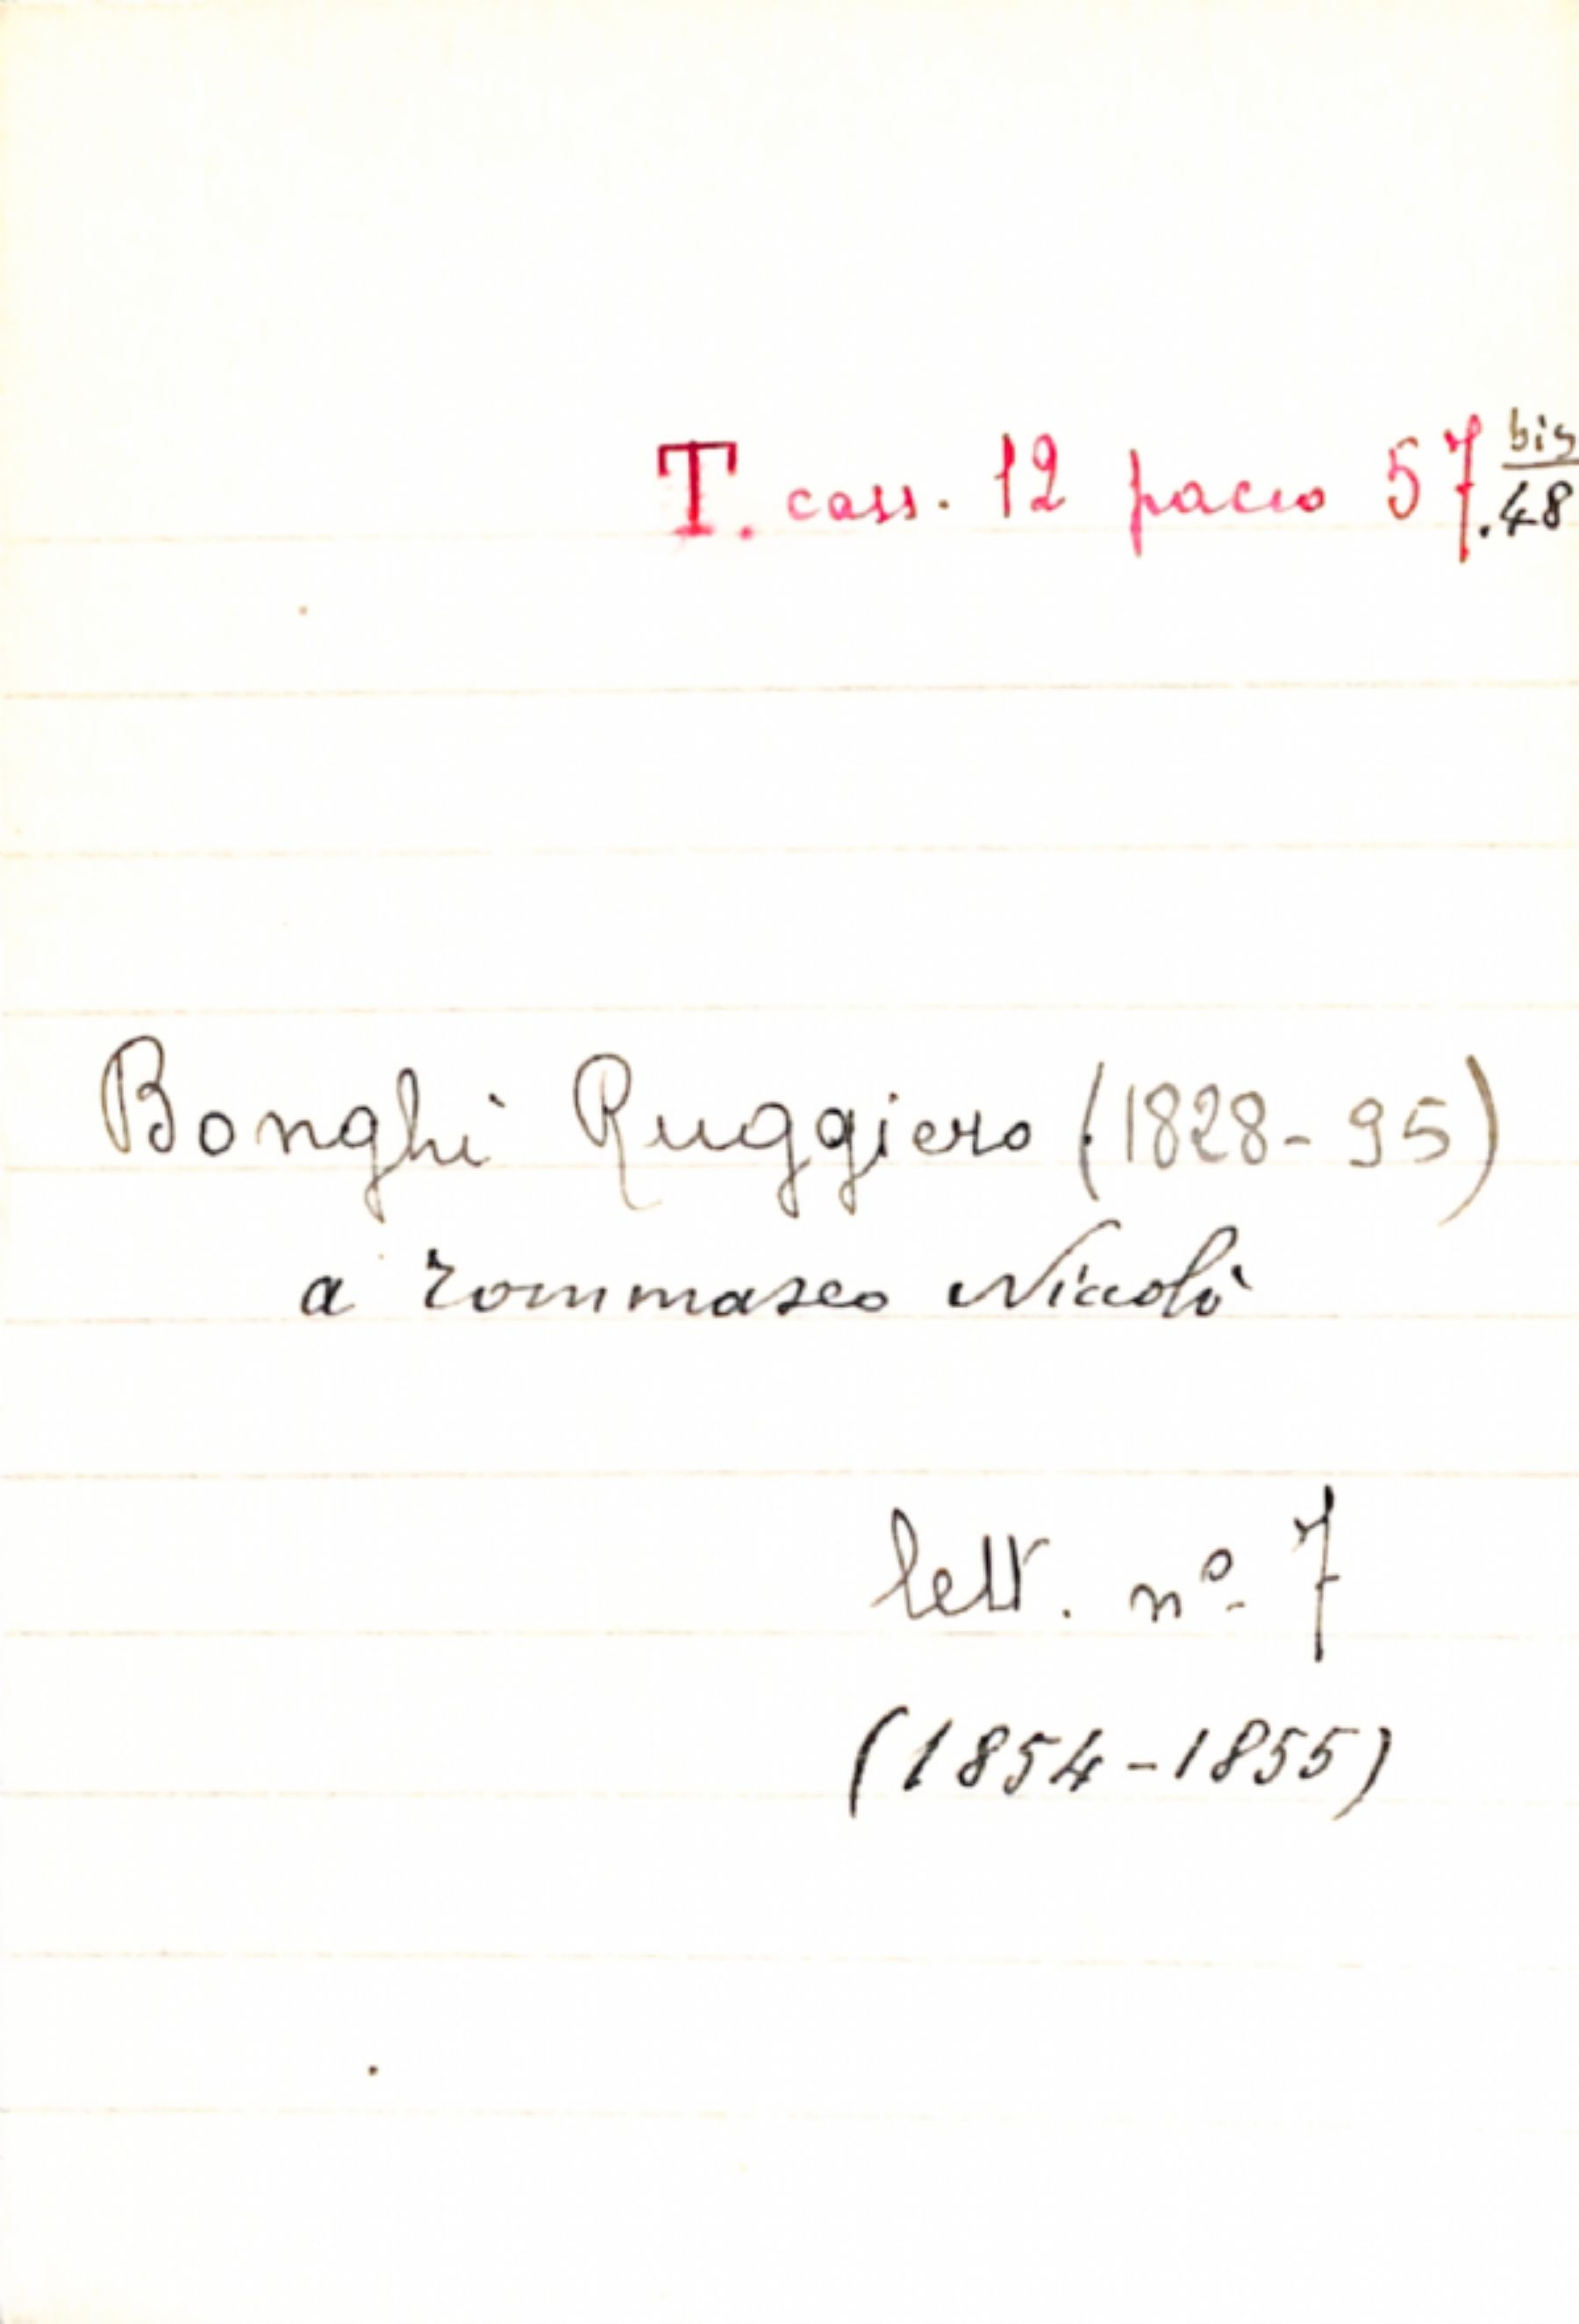 T. cass. 12 pacco 57.bis
.48
Bonghi Ruggiero (1828-95)
a Tommaseo Niccolò
lett. nº 7
(1854-1855)